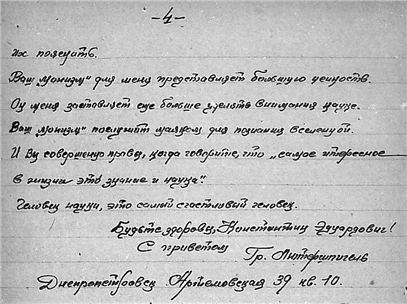 -4-
их пояснить.
Ваш „монизм" для меня представляет большую ценность.
Он меня заставляет еще больше уделять внимания науке.
Ваш „монизм" послужит маяком для познания вселенной.
И Вы совершенно правы, когда говорите, что „самое интересное
в жизни это знание и наука".
Человек науки, это самый счастливый человек.
Будьте здоровы, Константин Эдуардович!
С приветом
Гр.
Днепропетровск. Артемовская 39 кв. 10.